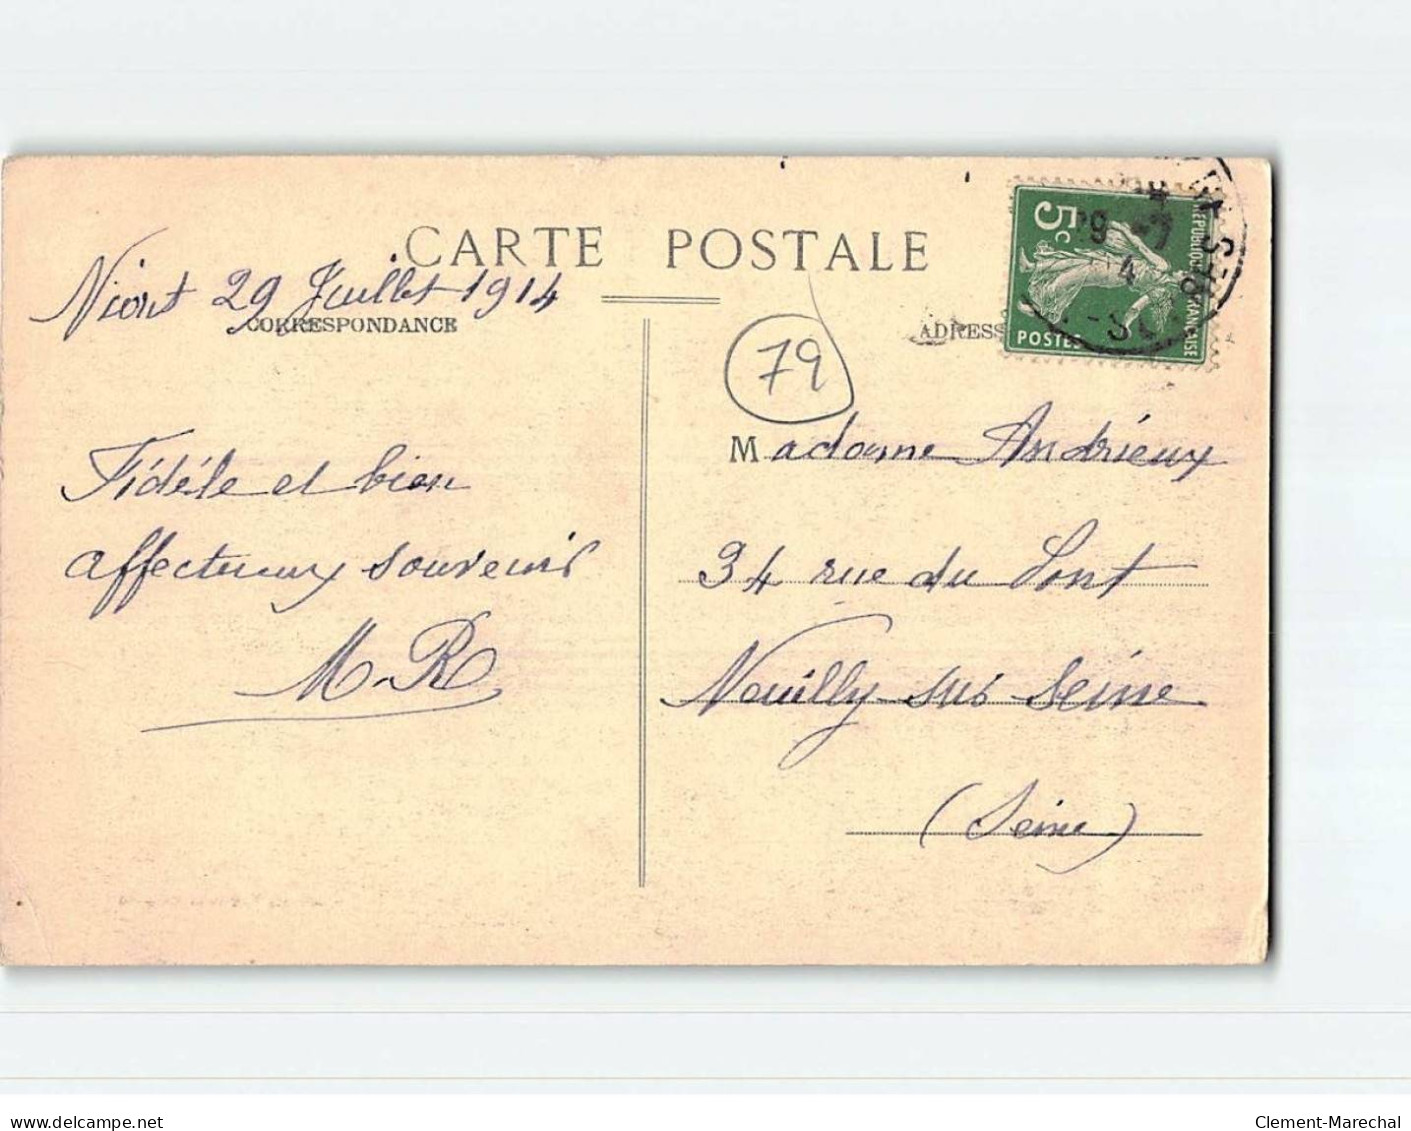 CARTE POSTALE
Niort 29 Juillet 1914
CORRESPONDANCE
ADRESS
5c
RÉPUBLIQUE FRANÇAISE
POSTES
29 -7
79
Fidéle et bien
affectueux souvenir
M. R
Madame Andrieux
34 rue du Pont
Neuilly sur Seine
(Seine)
delcampe.net
Clement-Marechal